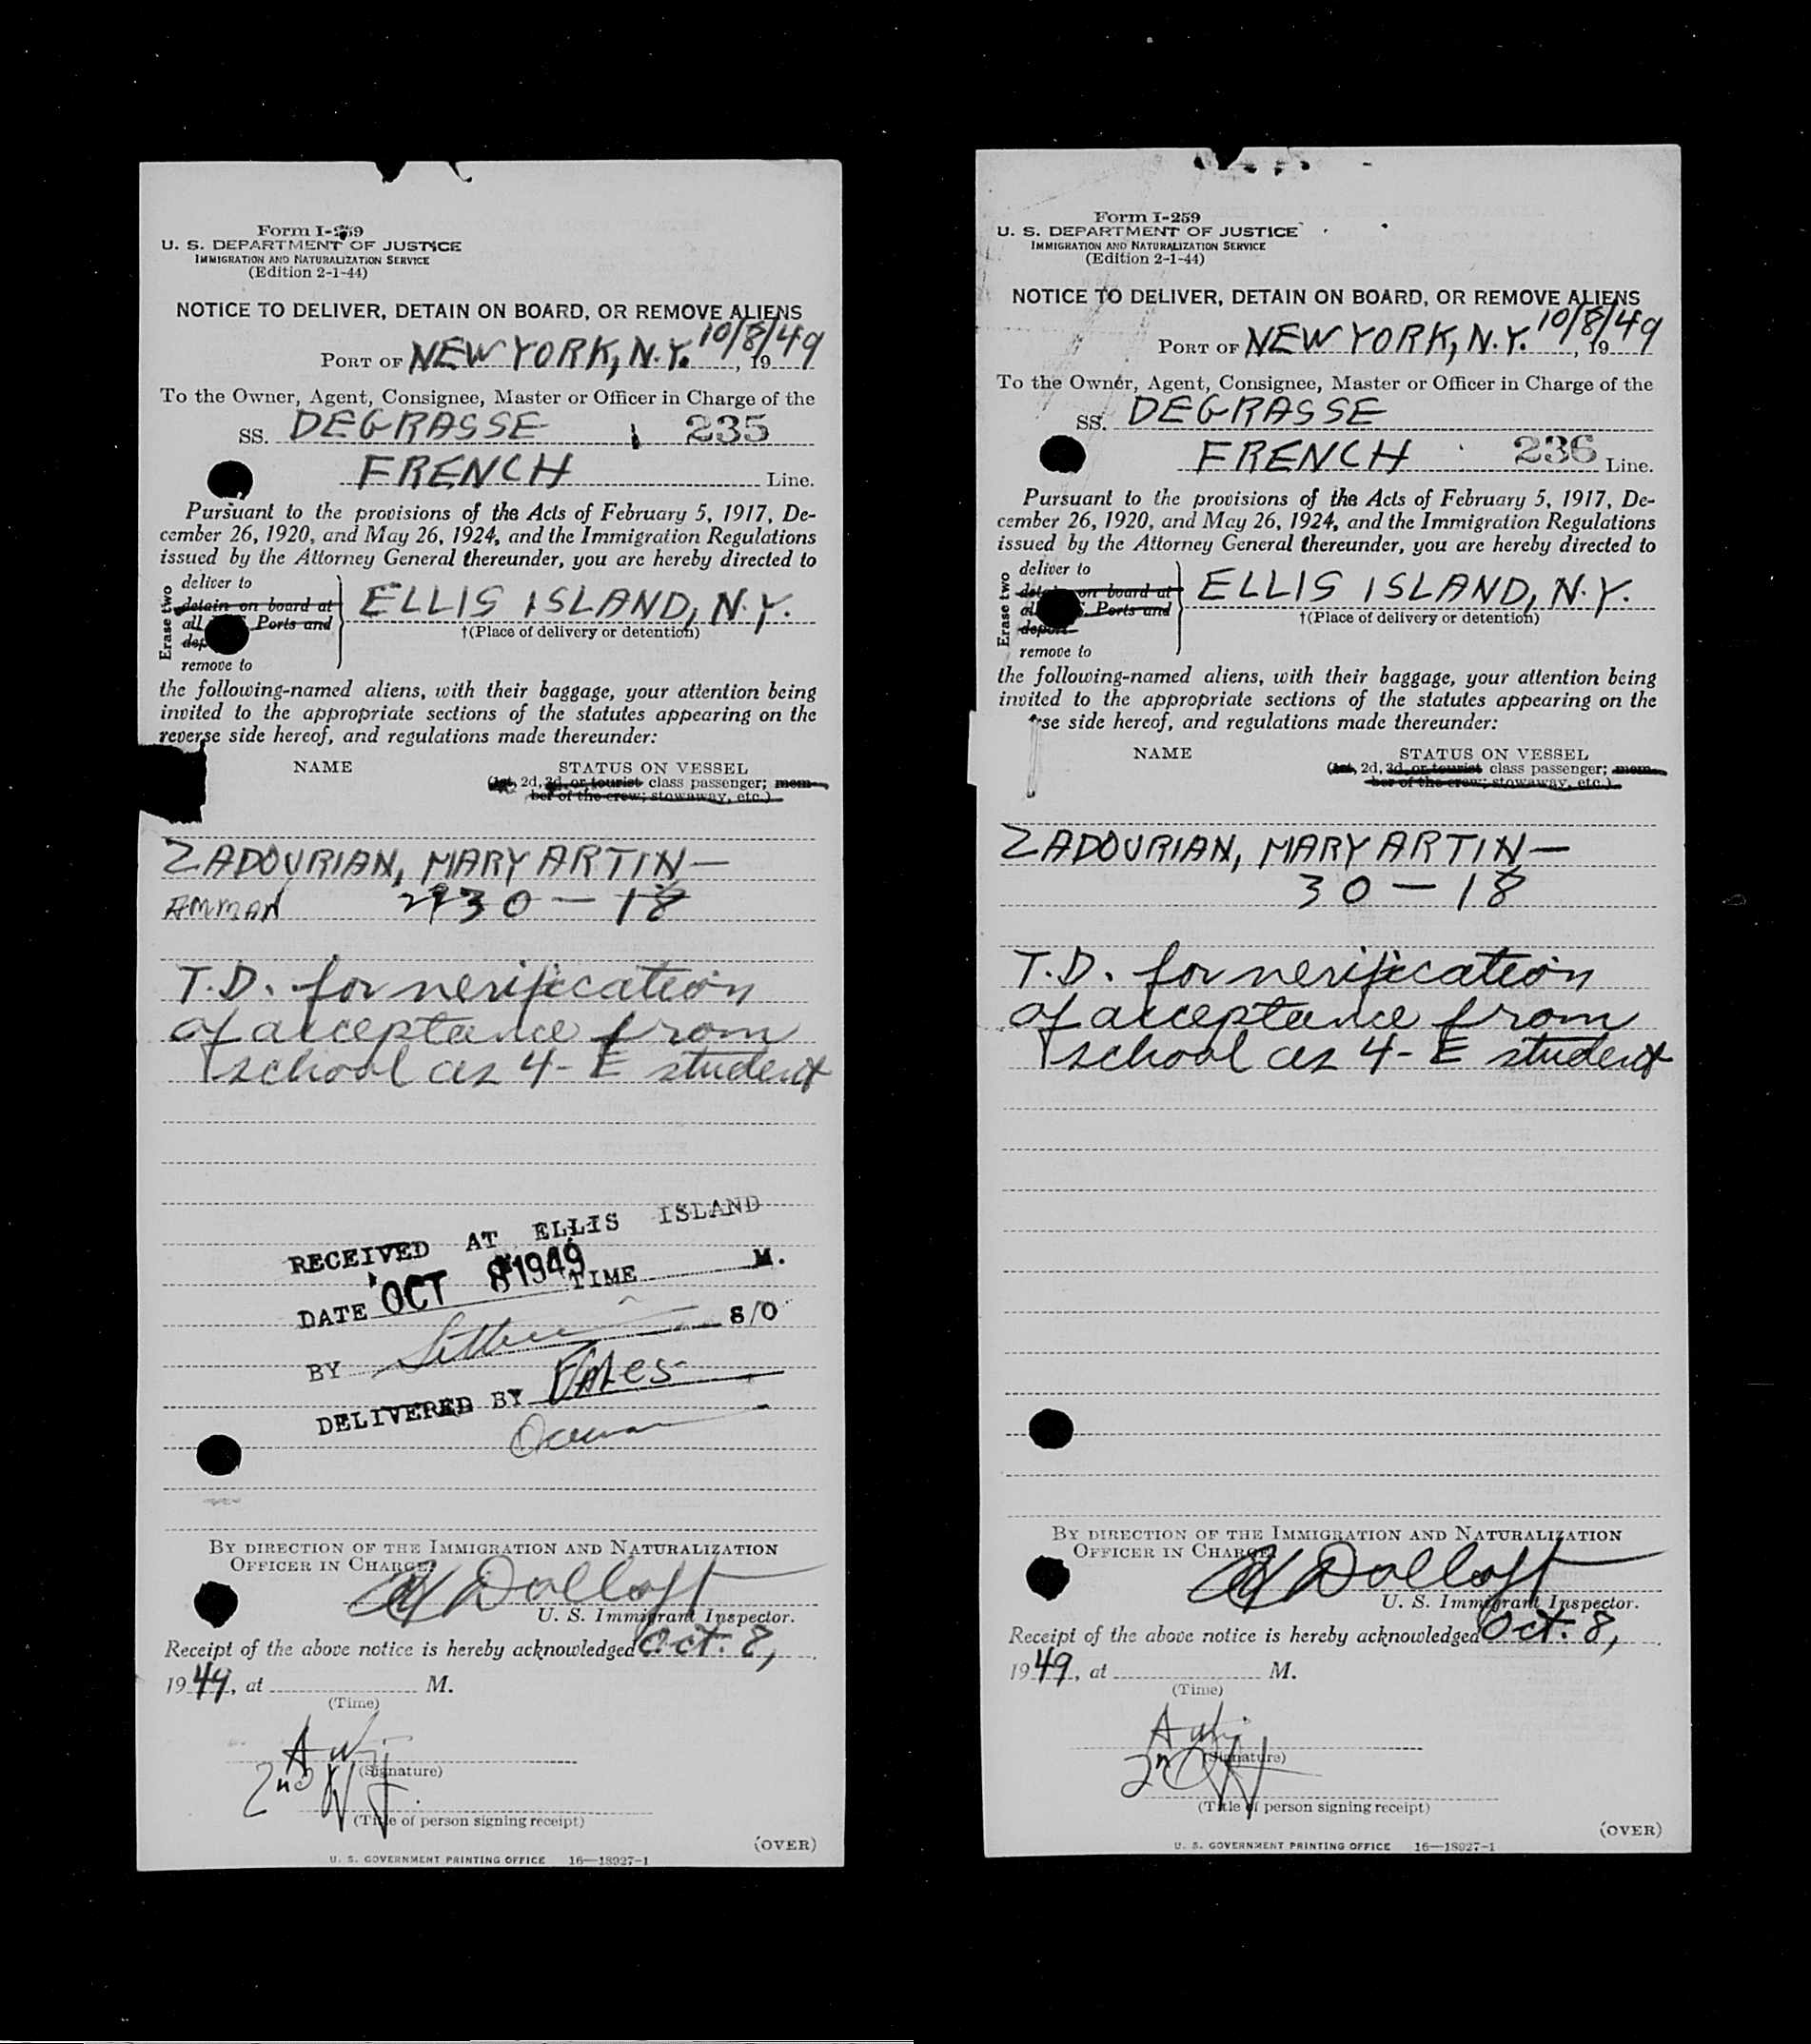 Form I-259
U. S. DEPARTMENT OF JUSTICE
IMMIGRATION AND NATURALIZATION SERVICE
(Edition 2-1-44)
NOTICE TO DELIVER, DETAIN ON BOARD, OR REMOVE ALIENS
10/8/49
PORT OF NEW YORK, N.Y. , 19
To the Owner, Agent, Consignee, Master or Officer in Charge of the
SS. DEGRASSE 235
FRENCH Line.
Pursuant to the provisions of the Acts of February 5, 1917, De-
cember 26, 1920, and May 26, 1924, and the Immigration Regulations
issued by the Attorney General thereunder, you are hereby directed to
Erase two
deliver to
detain on board at
all Ports and
remove to
ELLIS ISLAND, N.Y.
†(Place of delivery or detention)
the following-named aliens, with their baggage, your attention being
invited to the appropriate sections of the statutes appearing on the
reverse side hereof, and regulations made thereunder:
NAME STATUS ON VESSEL
(1st, 2d, 3d, or tourist class passenger; mem-
ber of the crew; stowaway, etc.)
ZADOURIAN, MARY ARTIN—
AMMAN 30 — 18
T.D. for verification
of acceptance from
school as 4-E student
RECEIVED AT ELLIS ISLAND
DATE OCT 8 1949 TIME M.
BY S/O
DELIVERED BY
BY DIRECTION OF THE IMMIGRATION AND NATURALIZATION
OFFICER IN CHARGE:
Dolloff
U. S. Immigrant Inspector.
Receipt of the above notice is hereby acknowledged Oct. 8,
1949, at M.
(Time)
(Signature)
2nd
(Title of person signing receipt)
(OVER)
U. S. GOVERNMENT PRINTING OFFICE 16—18927-1
Form I-259
U. S. DEPARTMENT OF JUSTICE
IMMIGRATION AND NATURALIZATION SERVICE
(Edition 2-1-44)
NOTICE TO DELIVER, DETAIN ON BOARD, OR REMOVE ALIENS
10/8/49
PORT OF NEW YORK, N.Y. , 19
To the Owner, Agent, Consignee, Master or Officer in Charge of the
SS. DEGRASSE
FRENCH 236 Line.
Pursuant to the provisions of the Acts of February 5, 1917, De-
cember 26, 1920, and May 26, 1924, and the Immigration Regulations
issued by the Attorney General thereunder, you are hereby directed to
Erase two
deliver to
on board at
Ports and
deport
remove to
ELLIS ISLAND, N.Y.
†(Place of delivery or detention)
the following-named aliens, with their baggage, your attention being
invited to the appropriate sections of the statutes appearing on the
rse side hereof, and regulations made thereunder:
NAME STATUS ON VESSEL
(1st, 2d, 3d, or tourist class passenger; mem-
ber of the crew; stowaway, etc.)
ZADOURIAN, MARY ARTIN—
30 — 18
T.D. for verification
of acceptance from
school as 4-E student
BY DIRECTION OF THE IMMIGRATION AND NATURALIZATION
OFFICER IN CHARGE:
Dolloff
U. S. Immigrant Inspector.
Receipt of the above notice is hereby acknowledged Oct. 8,
1949, at M.
(Time)
(Signature)
2nd
(Title of person signing receipt)
(OVER)
U. S. GOVERNMENT PRINTING OFFICE 16—18927-1